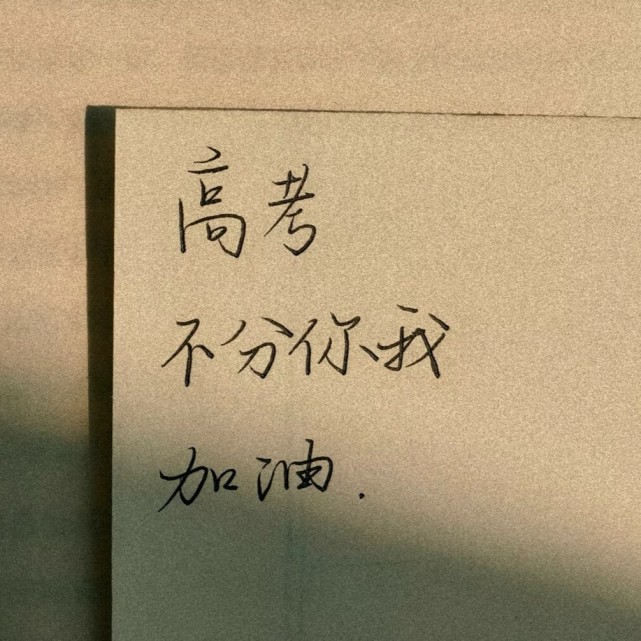 高考
不分你我
加油.